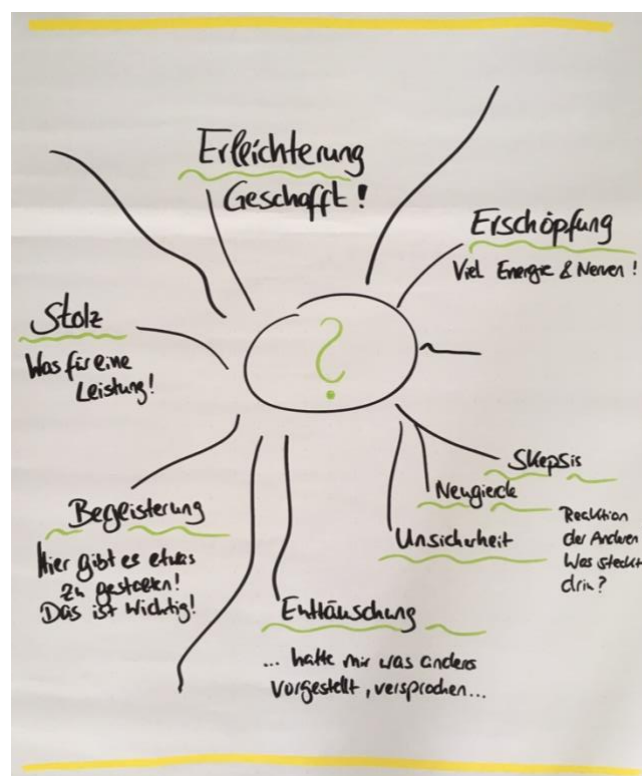 Erleichterung
Geschafft!
Erschöpfung
Viel Energie & Nerven!
Stolz
Was für eine
Leistung!
?
Skepsis
Neugierde
Unsicherheit
Reaktion
der Anderen
Was steckt
drin?
Begeisterung
Hier gibt es etwas
zu gestalten!
Das ist wichtig!
Enttäuschung
... hatte mir was anders
vorgestellt, versprochen...